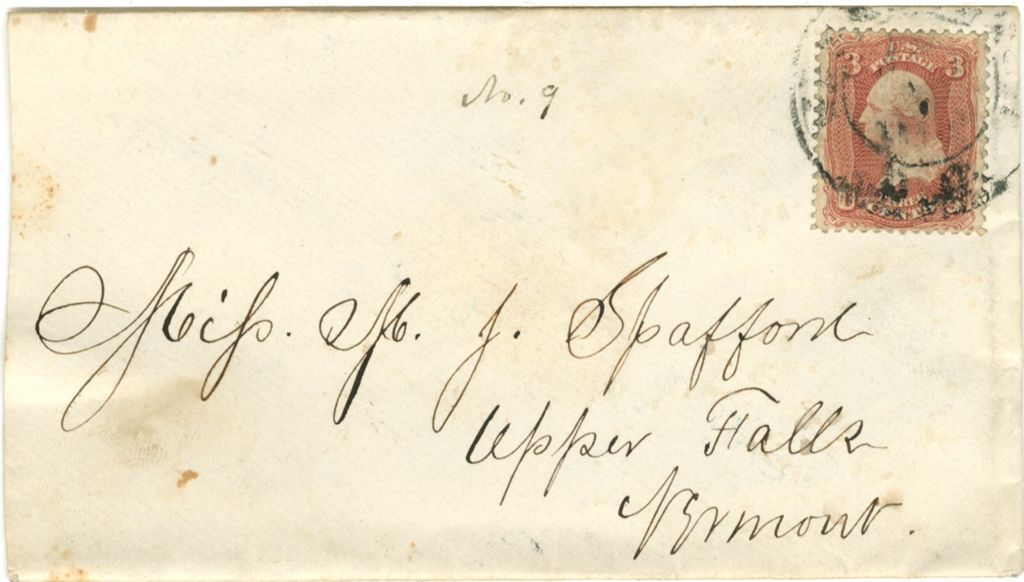 No. 9
3 U.S. POSTAGE 3
U
Miss. M. J. Spafford
Upper Falls
Vermont.